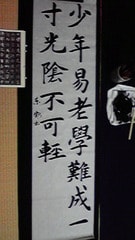 少年易老學難成一
寸光陰不可輕